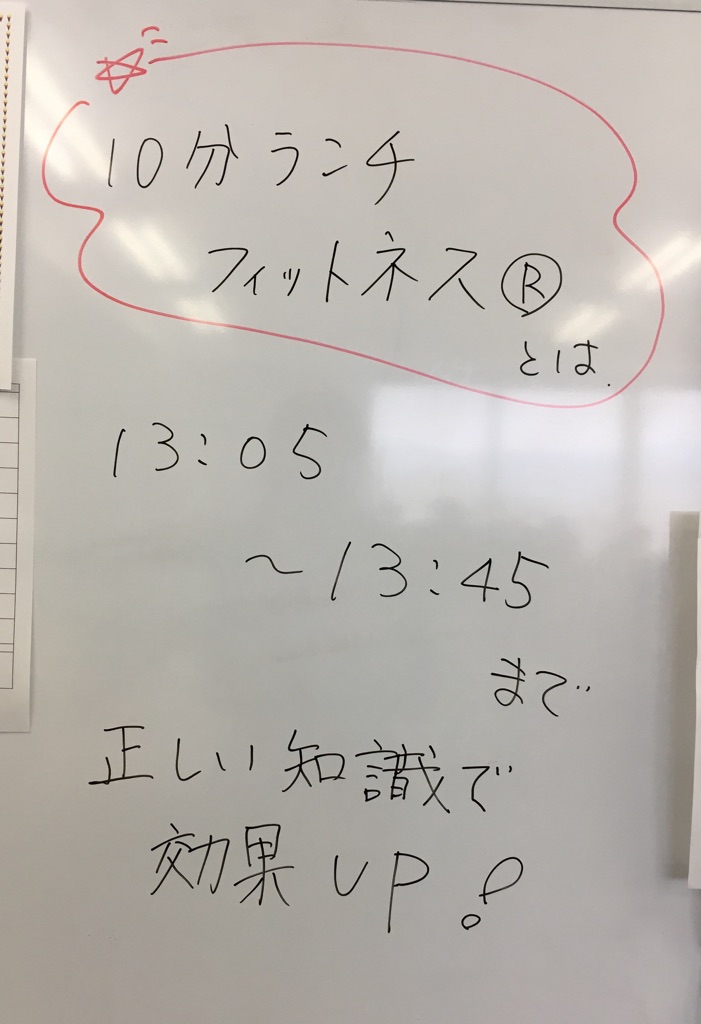 10分ランチ
フィットネス®
とは
13:05
〜13:45
まで
正しい知識で
効果UP!